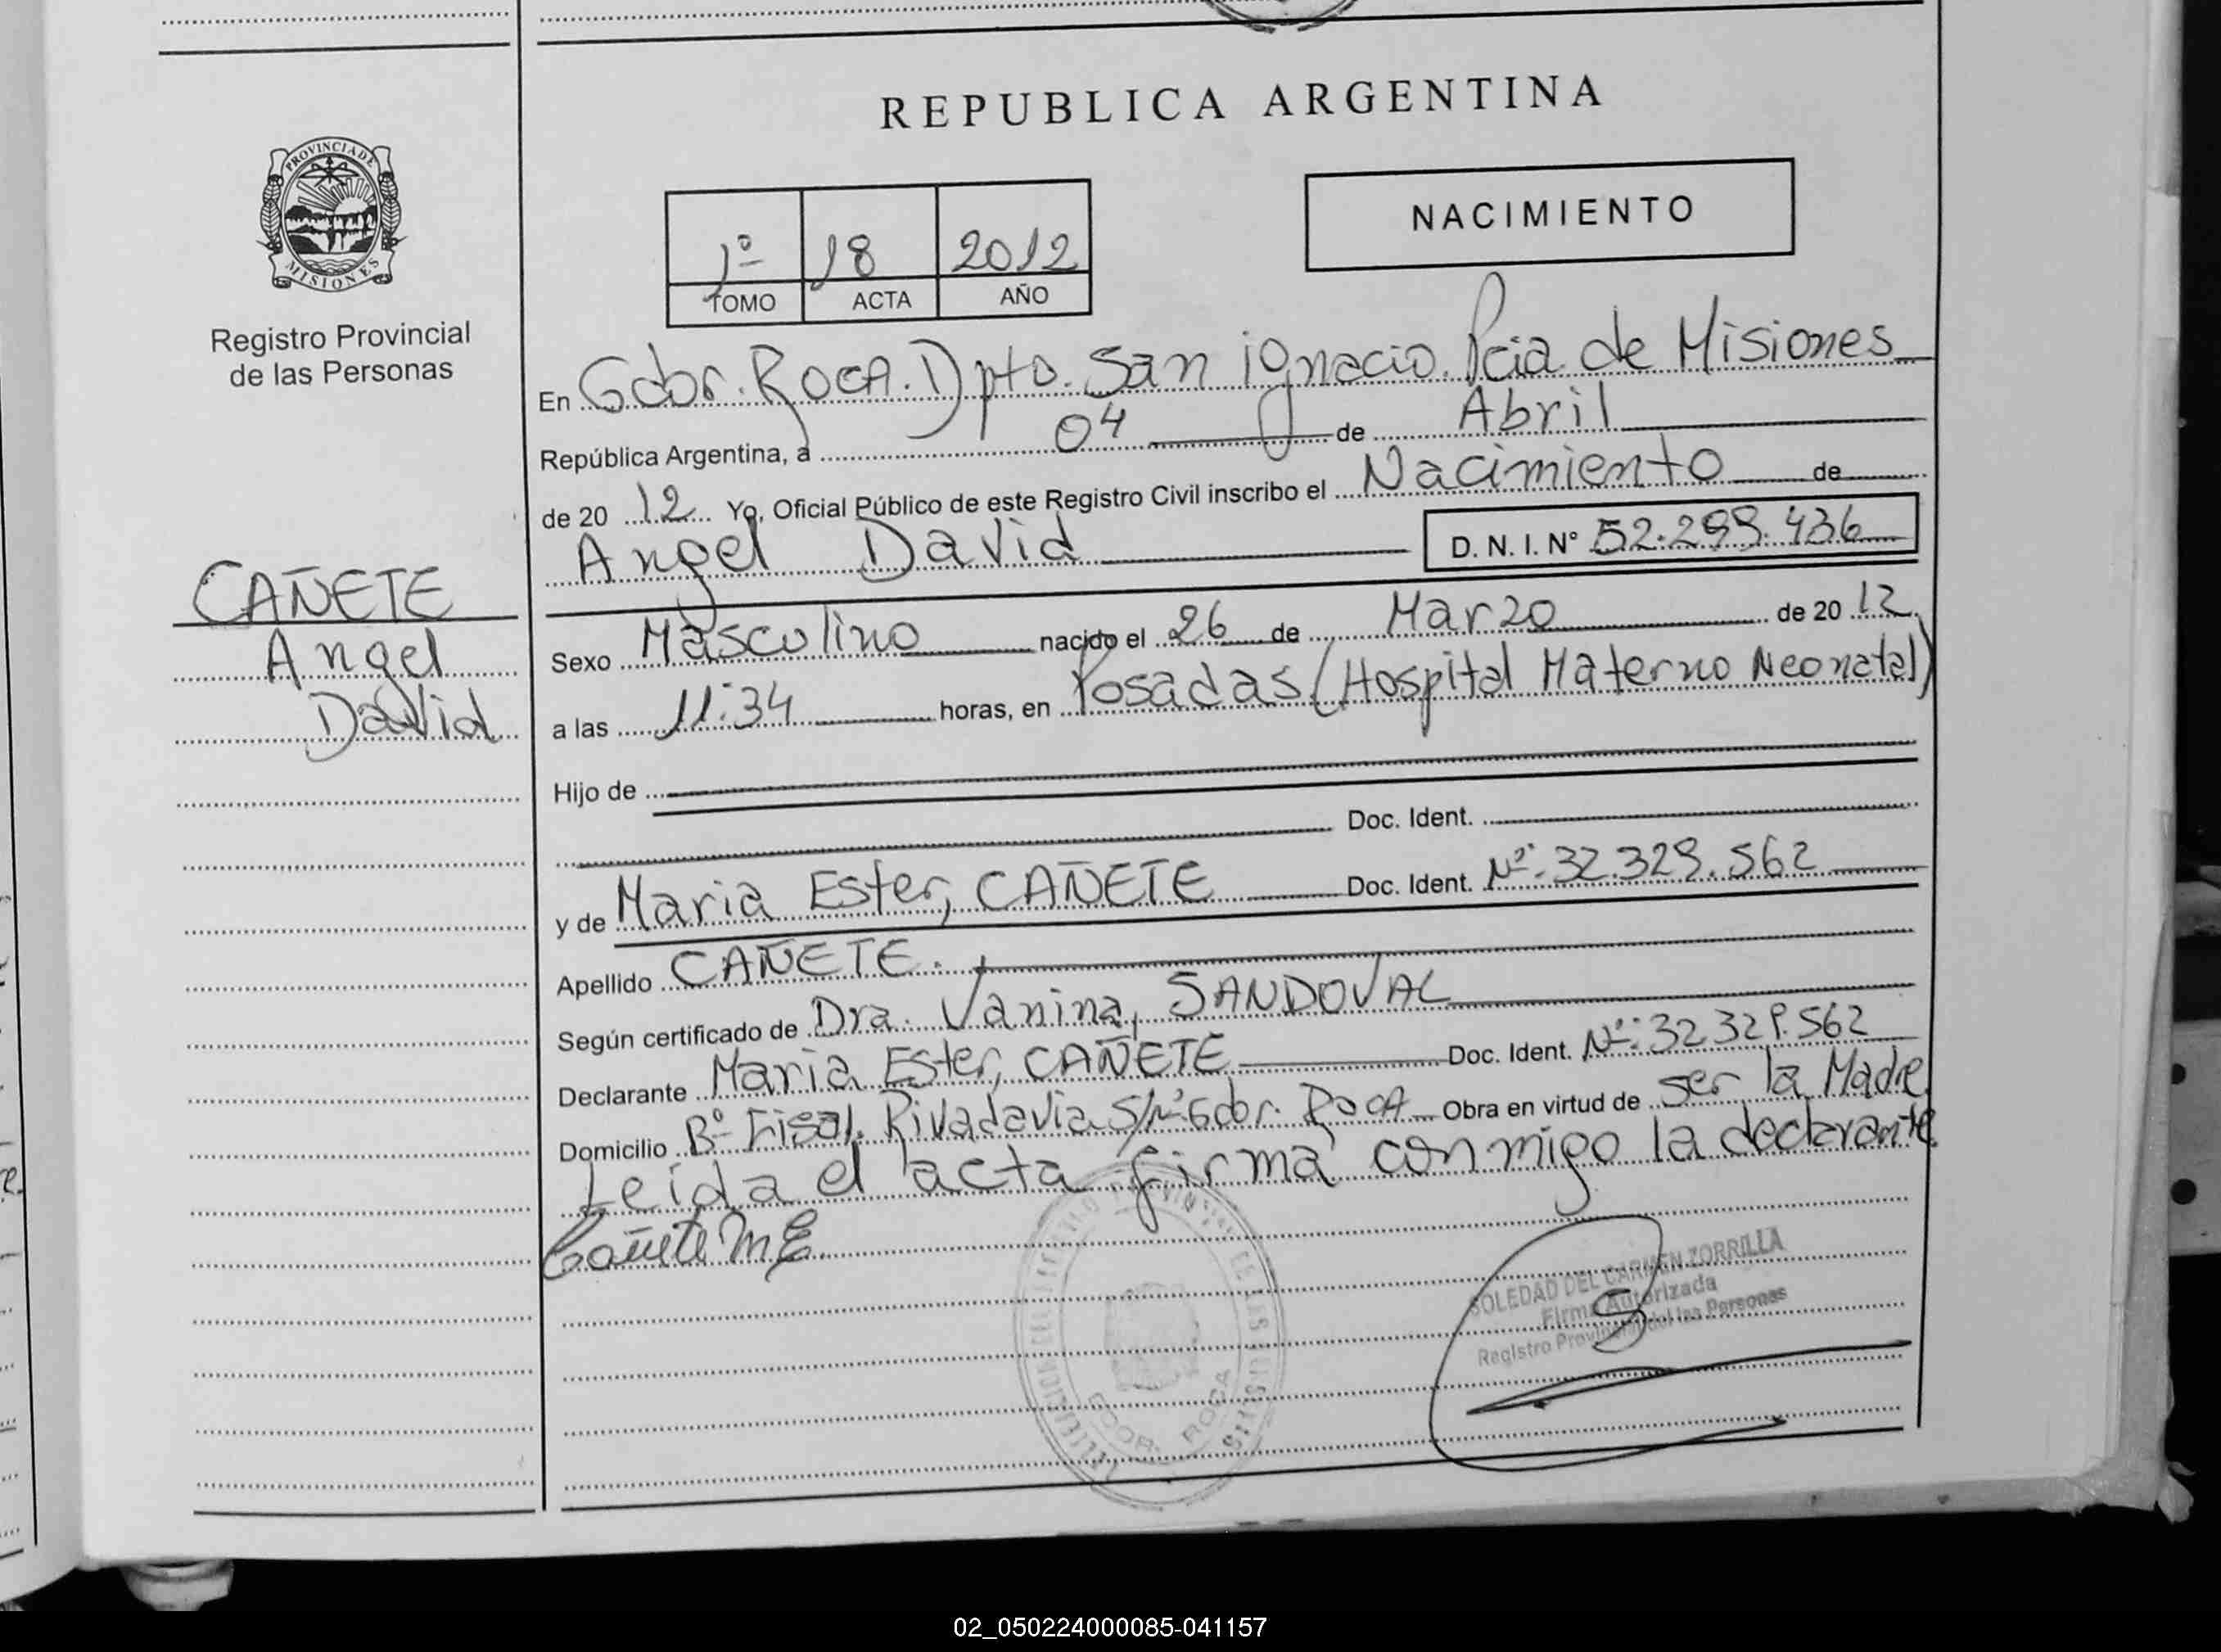 REPUBLICA ARGENTINA
PROVINCIA DE
MISIONES
Registro Provincial
de las Personas
1º 18 2012
TOMO ACTA AÑO
NACIMIENTO
En Gdor. ROCA. Dpto. San ignacio. Pcia de Misiones
República Argentina, a 04 de Abril
de 20 12 Yo, Oficial Público de este Registro Civil inscribo el Nacimiento de
Angel David D. N. I. Nº 52.299.436
CAÑETE
Angel
David
Sexo Masculino nacido el 26 de Marzo de 20 12.
a las 11:34 horas, en Posadas (Hospital Materno Neonatal)
Hijo de
Doc. Ident.
y de Maria Ester, CAÑETE Doc. Ident. Nº: 32.329.562
Apellido CAÑETE.
Según certificado de Dra. Vanina, SANDOVAL
Declarante Maria Ester, CAÑETE Doc. Ident. Nº: 32329.562
Domicilio Bº Fisal. Rivadavia S/Nº Gdor. ROCA Obra en virtud de ser la Madre
Leida el acta firma conmigo la declarante
Cañete M E.
SOLEDAD DEL CARMEN ZORRILLA
Firma Autorizada
Registro Provincial de las Personas
GDOR. ROCA
02_050224000085-041157